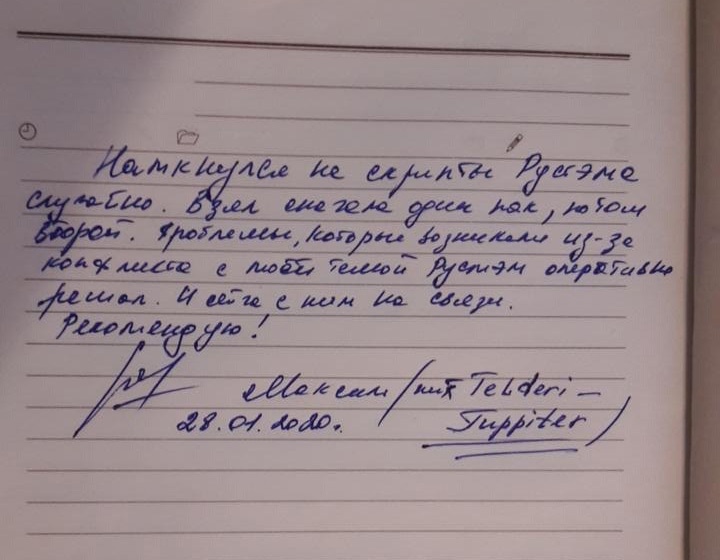 Наткнулся на скрипты Рустэма
случайно. Взял сначала один пак, потом
второй. Проблемы, которые возникали из-за
конфликта с моей темой Рустэм оперативно
решал. И сейчас с ним на связи.
Рекомендую!
Максим (ник Tehderi-
28.01.2020г. Juppiter)